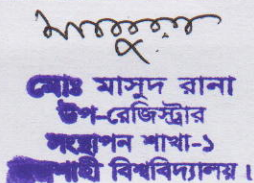 মোঃ মাসুদ রানা
উপ-রেজিস্ট্রার
সংস্থাপন শাখা-১
রাজশাহী বিশ্ববিদ্যালয়।